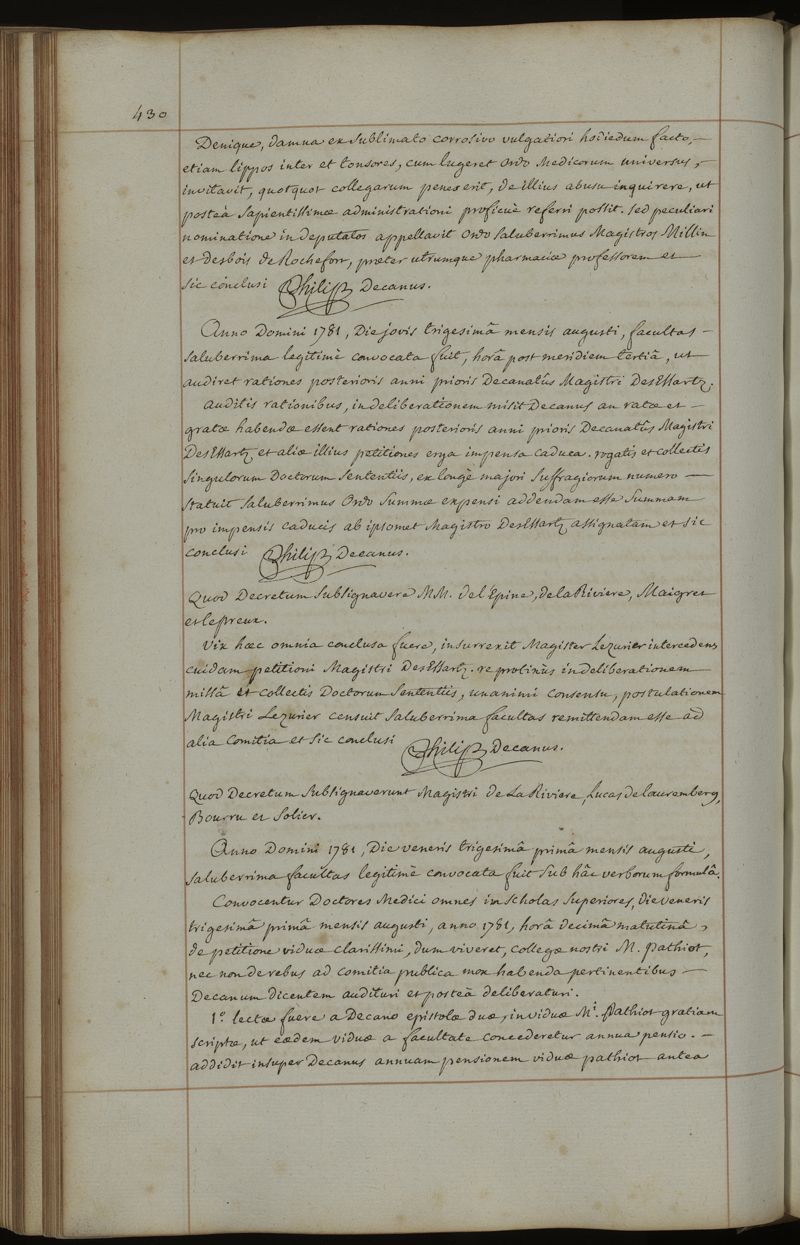 430
Denique, damna ex sublimato corrosivo vulgatiori hodiedum facto,—
etiam lippos inter et tonsores, cum lugeret ordo Medicorum universus, —
invitavit, quotquot collegarum penes erit, de illius abusu inquirere, ut
posteà sapientissimæ administrationi proficuè referri possit. sed peculiari
nominatione in deputatos appellavit ordo saluberrimus Magistros Millin
et Desbois de Rochefort, præter utrumque pharmaciæ professorem et —
sic conclusi Philip Decanus.
Anno Domini 1781, Die jovis trigesimâ mensis augusti, facultas —
saluberrima legitimè convocata fuit, horâ post meridiem tertiâ, ut —
audiret rationes posterioris anni prioris Decanatûs Magistri DesEssartz.
Auditis rationibus, in deliberationem misit Decanus an ratæ et —
gratæ habendæ essent rationes posterioris anni prioris Decanatûs Magistri
DesEssartz et aliæ illius petitiones erga impensa caduca. rogatis et collectis
singulorum Doctorum sententiis, ex longè majori suffragiorum numero —
statuit saluberrimus ordo summæ expensi addendam esse summam
pro impensis caducis ab ipsomet Magistro DesEssartz assignatam et sic
conclusi Philip Decanus.
Quod Decretum subsignavere MM. de l'Epine, de la Riviere, Maigret
et lepreux.
Vix hæc omnia conclusa fuere, insurrexit Magister Lezurier intercedens
cuidam petitioni Magistri DesEssartz. re protinùs in deliberationem
missâ et collectis Doctorum sententiis, unanimi consensu, postulationem
Magistri Lezurier censuit saluberrima facultas remittendam esse ad
alia Comitia et sic conclusi Philip Decanus.
Quod Decretum subsignaverunt Magistri de La Riviere, Lucas de lauremberg,
Bourru et solier.
Anno Domini 1781, Die veneris trigesimâ primâ mensis augusti,
saluberrima facultas legitimè convocata fuit sub hâc verborum formulâ.
Convocentur Doctores Medici omnes in scholas superiores, die veneris
trigesimâ primâ mensis augusti, anno 1781, horâ decimâ matutinâ,
de petitione viduæ clarissimi, dum viveret, collegæ nostri M. pathiot,
nec non de rebus ad comitia publica mox habenda pertinentibus —
Decanum dicentem audituri et posteà deliberaturi.
1.° lectæ fuere a Decano epistolæ duæ, in viduæ M.i Pathiot gratiam
scriptæ, ut eædem viduæ a facultate concederetur annua pensio. —
addidit insuper Decanus annuam pensionem viduæ pathiot antea